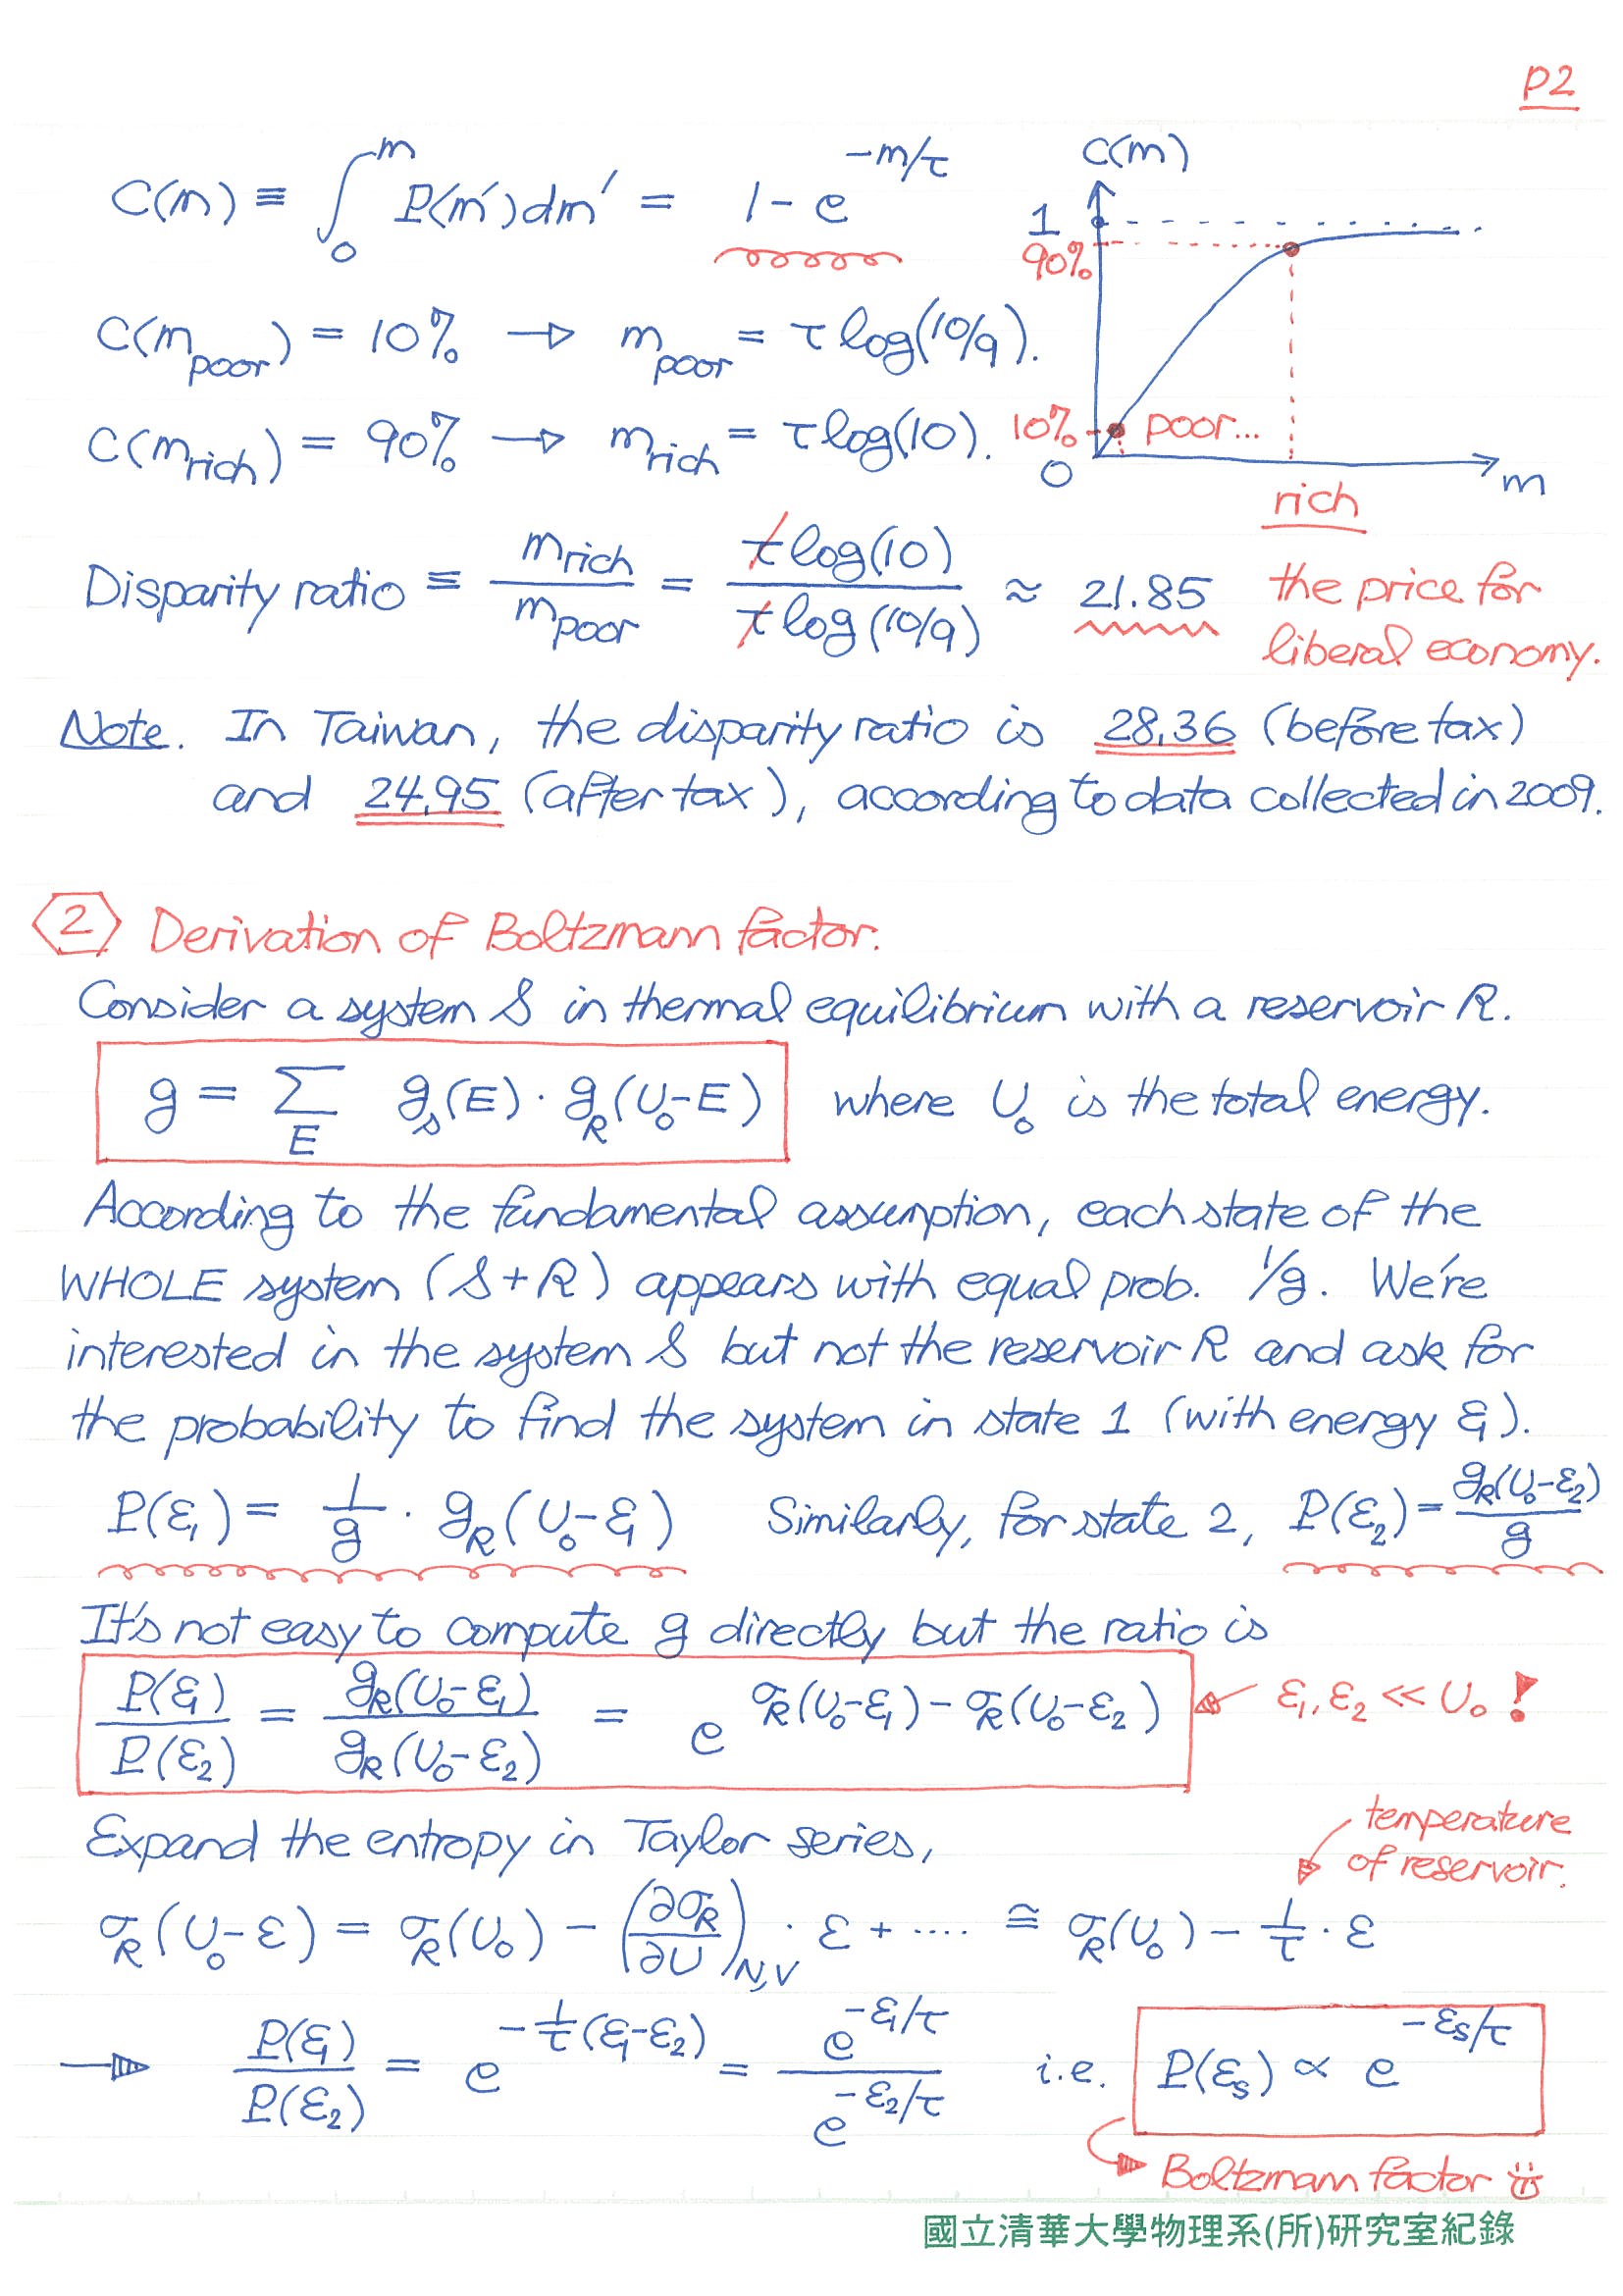 P2
C(m) ≡ ∫₀^m P(m′)dm′ = 1 - e^{-m/τ}
C(m)
1
90%
10%
poor...
0
m
rich
C(m_poor) = 10% → m_poor = τ log(10/9).
C(m_rich) = 90% → m_rich = τ log(10).
Disparity ratio ≡ m_rich / m_poor = τ log(10) / τ log(10/9) ≈ 21.85
the price for
liberal economy.
Note. In Taiwan, the disparity ratio is 28.36 (before tax)
and 24.95 (after tax), according to data collected in 2009.
2 Derivation of Boltzmann factor.
Consider a system S in thermal equilibrium with a reservoir R.
g = Σ_E g_s(E) · g_R(U₀-E) where U₀ is the total energy.
According to the fundamental assumption, each state of the
WHOLE system (S+R) appears with equal prob. 1/g. We're
interested in the system S but not the reservoir R and ask for
the probability to find the system in state 1 (with energy ε₁).
P(ε₁) = 1/g · g_R(U₀-ε₁) Similarly, for state 2, P(ε₂) = g_R(U₀-ε₂)/g
It's not easy to compute g directly but the ratio is
P(ε₁)/P(ε₂) = g_R(U₀-ε₁)/g_R(U₀-ε₂) = e^{σ_R(U₀-ε₁) - σ_R(U₀-ε₂)} ε₁, ε₂ << U₀ !
Expand the entropy in Taylor series,
temperature
of reservoir.
σ_R(U₀-ε) = σ_R(U₀) - (∂σ_R/∂U)_{N,V} · ε + .... ≅ σ_R(U₀) - 1/τ · ε
→ P(ε₁)/P(ε₂) = e^{-1/τ(ε₁-ε₂)} = e^{-ε₁/τ}/e^{-ε₂/τ} i.e. P(ε_s) ∝ e^{-ε_s/τ}
Boltzmann factor
國立清華大學物理系(所)研究室紀錄